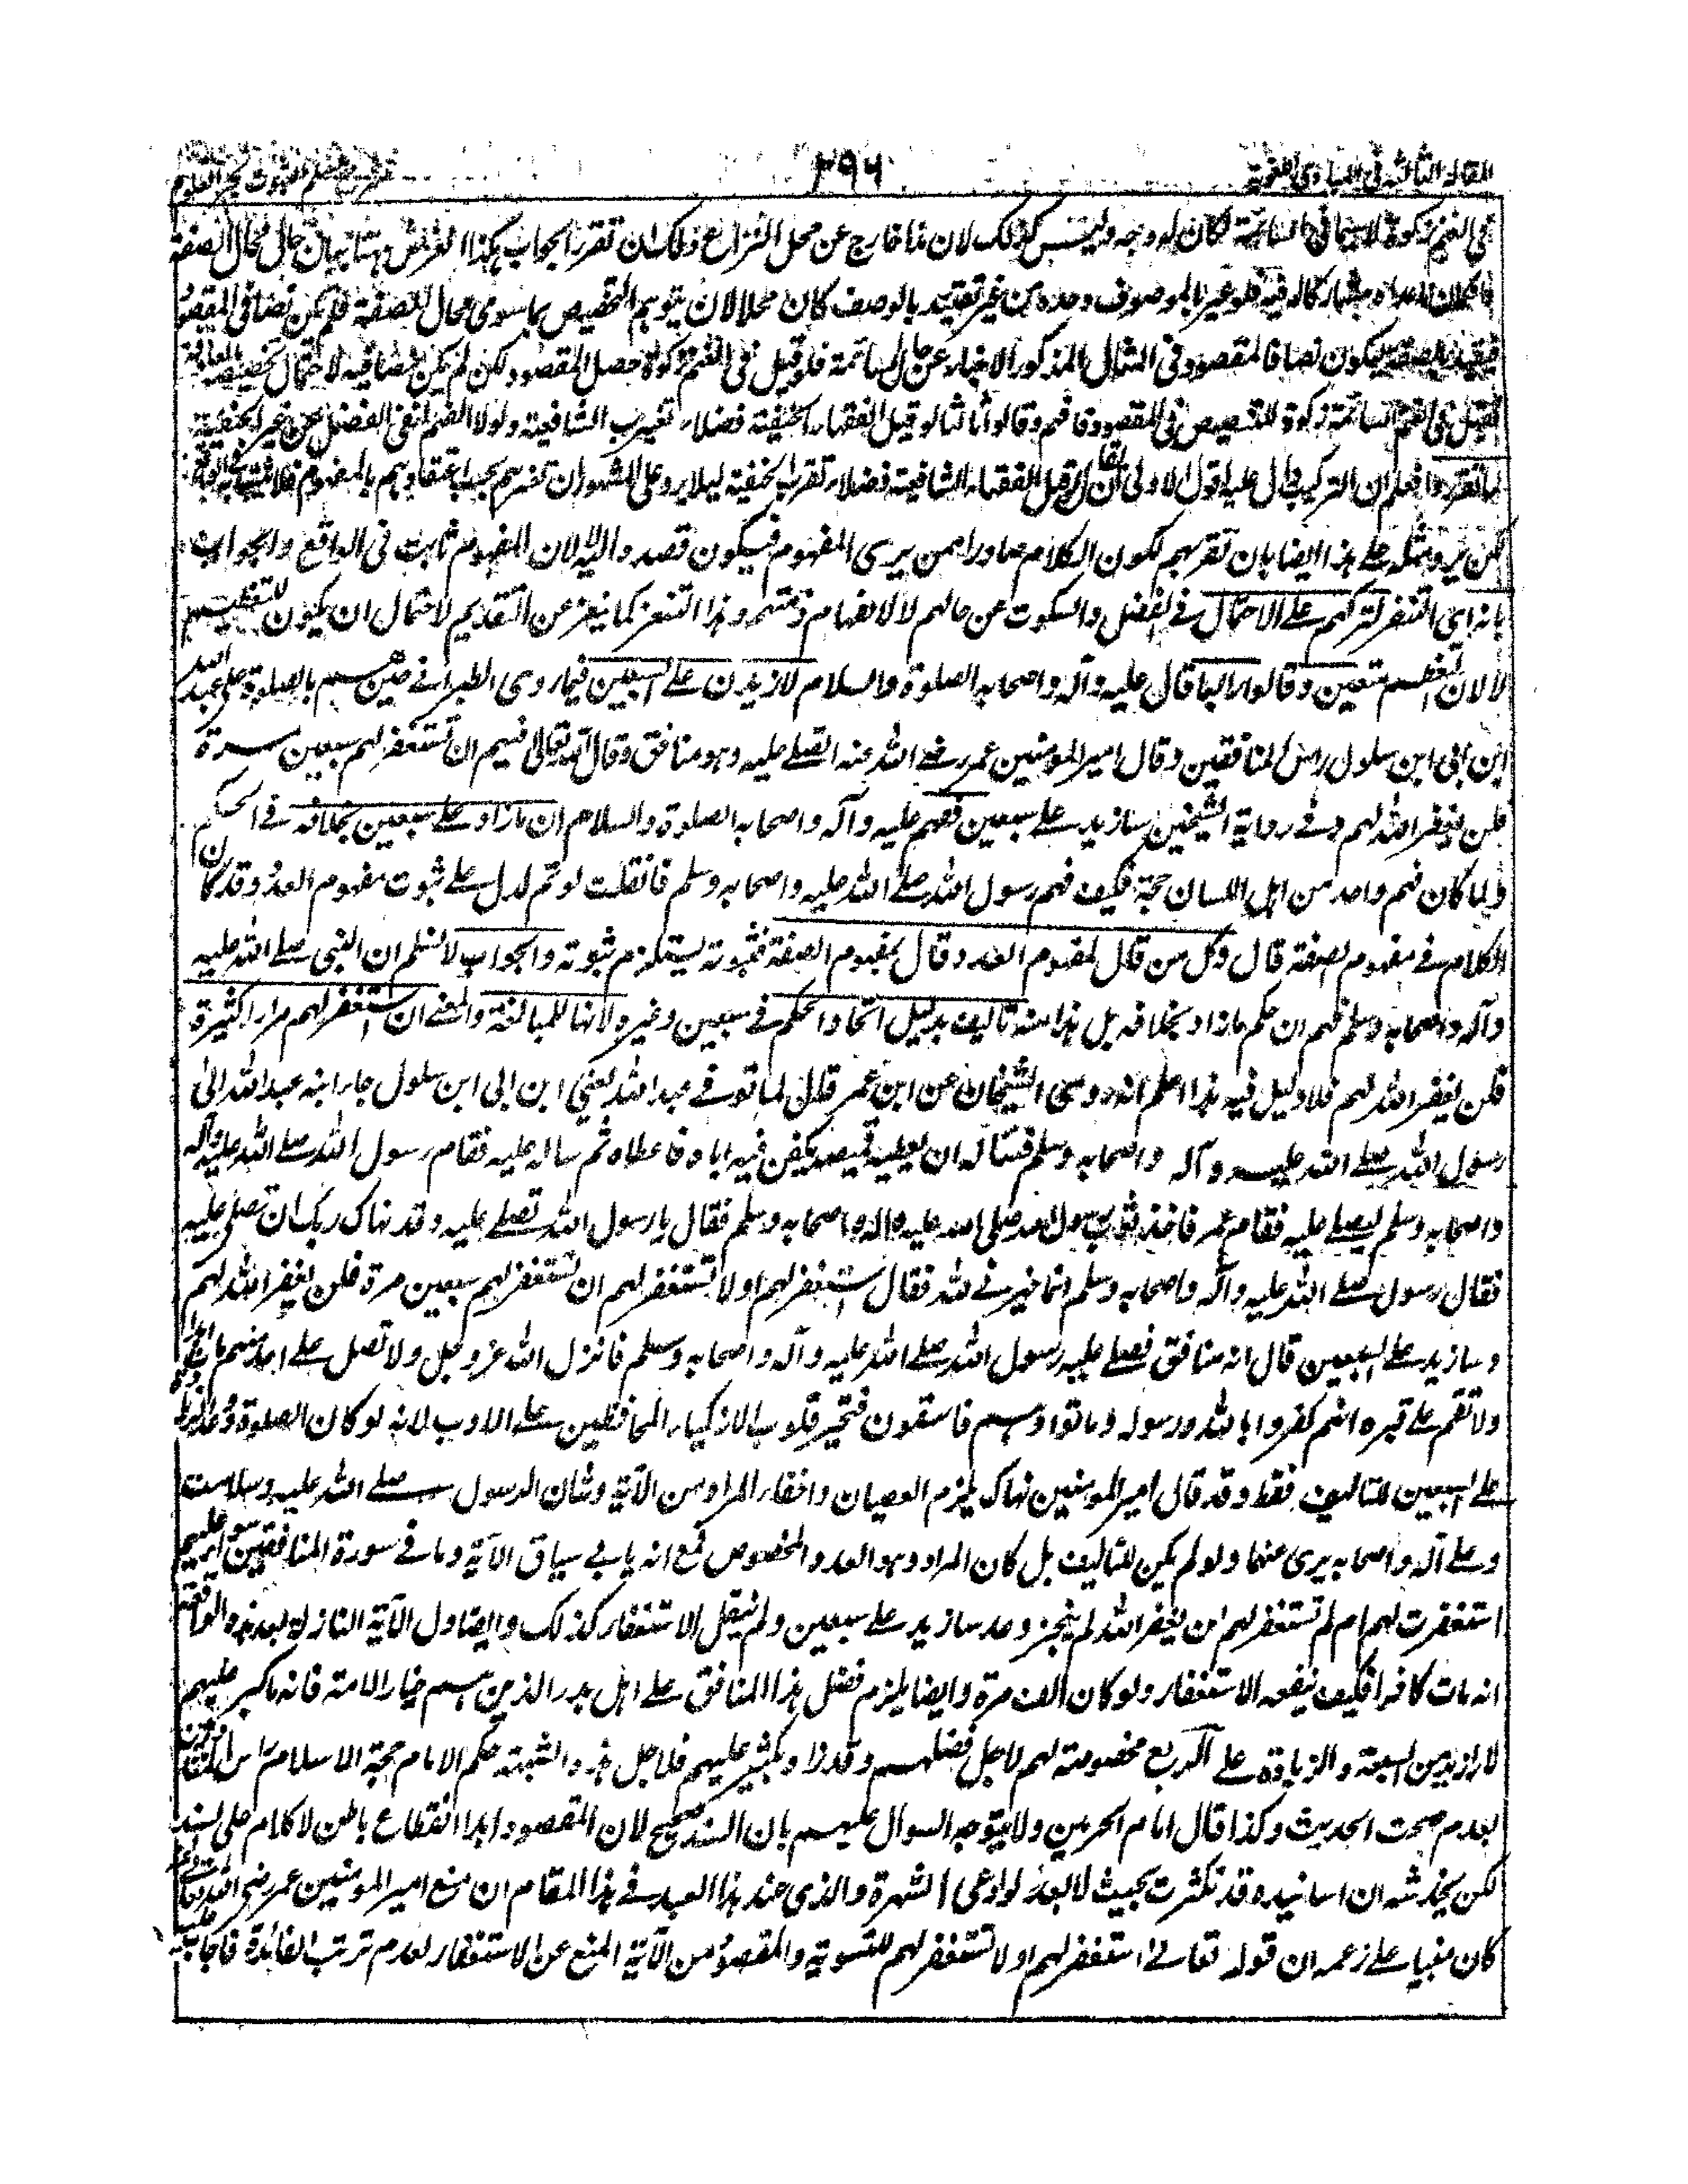 المقالة الثالثة في المبادي اللغوية ٢٩٦ شرح مسلم الثبوت لبحر العلوم
في الغنم زكوة لا سيما في السائمة لكان له وجه وليس كذلك لان هذا خارج عن محل النزاع ولك ان تقرر الجواب هكذا الغرض ههنا بيان حال محال الصفة
فلو عبر بالموصوف وحده من غير تقييد بالوصف كان محلا لان يتوهم التخصيص بما سوى محال الصفة فلم يكن نصا في المقصود
فيقيد بالصفة ليكون نصا في المقصود وفي المثال المذكور الاخبار عن حال السائمة فلو قيل في الغنم زكوة حصل المقصود لكن لم يكن نصا فيه لاحتمال تخصيصه بالمعلوفة
فقيل في الغنم السائمة زكوة للتنصيص في المقصود فافهم وقالوا ثالثا لو قيل الفقهاء الحنفية فضلاء لنفرت الشافعية ولولا الفهم لنفي الفضل عن غير الحنفية
لما نفروا فعلم ان التركيب دال عليه اقول الاولى ان يقال لو قيل الفقهاء الشافعية فضلاء لنفرت الحنفية ليلا يرد على المشهور ان تنفرهم بحسب اعتقادهم بالمفهوم فلا يثبت به في الواقع
لكن يرد مثله على هذا ايضا بان تنفرهم لكون الكلام صادرا ممن يرى المفهوم فيكون قصده والية لا لان المفهوم ثابت في الواقع والجواب
بانه اى التنفر لتركهم على الاحتمال في الفضل والسكوت عن حالهم لا لانفهام ذمتهم وهذا التنفر كما ينفر عن التقديم لاحتمال ان يكون للتعظيم
لا لان التعظيم متعين وقالوا رابعا قال عليه وآله واصحابه الصلوة والسلام لازيدن على السبعين فيما روى الطبراني حين هم بالصلوة على عبد الله
ابن ابي ابن سلول راس المنافقين وقال امير المومنين عمر رضى الله عنه اتصلى عليه وهو منافق وقال الله تعالى فيهم ان تستغفر لهم سبعين مرة
فلن يغفر الله لهم وفي رواية الشيخين سازيد على سبعين ففهم عليه وآله واصحابه الصلوة والسلام ان ما زاد على سبعين بخلافه في الحكم
ولما كان فهم واحد من اهل اللسان حجة فكيف فهم رسول الله صلى الله عليه واصحابه وسلم فان قلت لو تم لدل على ثبوت مفهوم العدد وقد كان
الكلام في مفهوم الصفة قال وكل من قال لمفهوم العدد قال بمفهوم الصفة فثبوته يستلزم ثبوته والجواب لا نسلم ان النبي صلى الله عليه
وآله واصحابه وسلم فهم ان حكم ما زاد بخلافه بل هذا منه تاليف بدليل اتحاد الحكم في سبعين وغيره لانها للمبالغة والمعنى ان استغفر لهم مرارا كثيرة
فلن يغفر الله لهم فلا دليل فيه هذا اعلم انه روى الشيخان عن ابن عمر قال لما توفي عبد الله يعني ابن ابي ابن سلول جاء ابنه عبد الله الى
رسول الله صلى الله عليه وآله واصحابه وسلم فساله ان يعطيه قميصه يكفن فيه اباه فاعطاه ثم ساله عليه فقام رسول الله صلى الله عليه وآله
واصحابه وسلم ليصلى عليه فقام عمر فاخذ ثوب رسول الله صلى الله عليه وآله واصحابه وسلم فقال يا رسول الله تصلى عليه وقد نهاك ربك ان تصلى عليه
فقال رسول صلى الله عليه وآله واصحابه وسلم انما خيرني الله فقال استغفر لهم او لا تستغفر لهم ان تستغفر لهم سبعين مرة فلن يغفر الله لهم
وسازيد على السبعين قال انه منافق فصلى عليه رسول الله صلى الله عليه وآله واصحابه وسلم فانزل الله عز وجل ولا تصل على احد منهم مات ابدا
ولا تقم على قبره انهم كفروا بالله ورسوله وماتوا وهم فاسقون فتحير قلوب الازكياء المحافظين على الادب لانه لو كان الصلوة ووعد الزيادة
على السبعين للتاليف فقط وقد قال امير المومنين نهاك يلزم العصيان واخفاء المراد من الآية وشان الرسول صلى الله عليه وسلامه
وعلى آله واصحابه برى منهما ولو لم يكن للتاليف بل كان المراد وهو العدد المخصوص فمع انه يابى سياق الآية وما في سورة المنافقين سواء عليهم
استغفرت لهم ام لم تستغفر لهم لن يغفر الله لم ينجز وعد سازيد على سبعين ولم ينقل الاستغفار كذلك وايضا دل الآية النازلة بعد هذه الواقعة
انه مات كافرا فكيف ينفعه الاستغفار ولو كان الف مرة وايضا يلزم فضل هذا المنافق على اهل بدر الذين هم خيار الامة فانه ما كبر عليهم
لا ازيد من السبعة والزيادة على الاربع مخصوصة لهم لاجل فضلهم وقد زاد بكثير عليهم فلاجل هذه الشبهة حكم الامام حجة الاسلام
بعدم صحت الحديث وكذا قال امام الحرمين ولا يتوجه السوال عليهم بان السند صحيح لان المقصود ابداء انقطاع باطن لا كلام على السند
لكن يخدشه ان اسانيده قد تكثرت بحيث لا يبعد لو ادعى الشهرة والذى عند هذا العبد في هذا المقام ان منع امير المومنين عمر رضى الله تعالى عنه
كان مبنيا على زعمه ان قوله تعالى استغفر لهم او لا تستغفر لهم للتسوية والمقصود من الآية المنع عن الاستغفار لعدم ترتب الفائدة فاجاب عليه